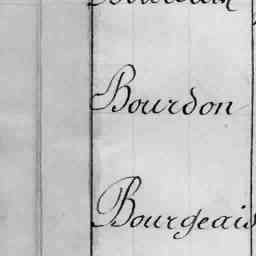 Bourdon
Bourgeais